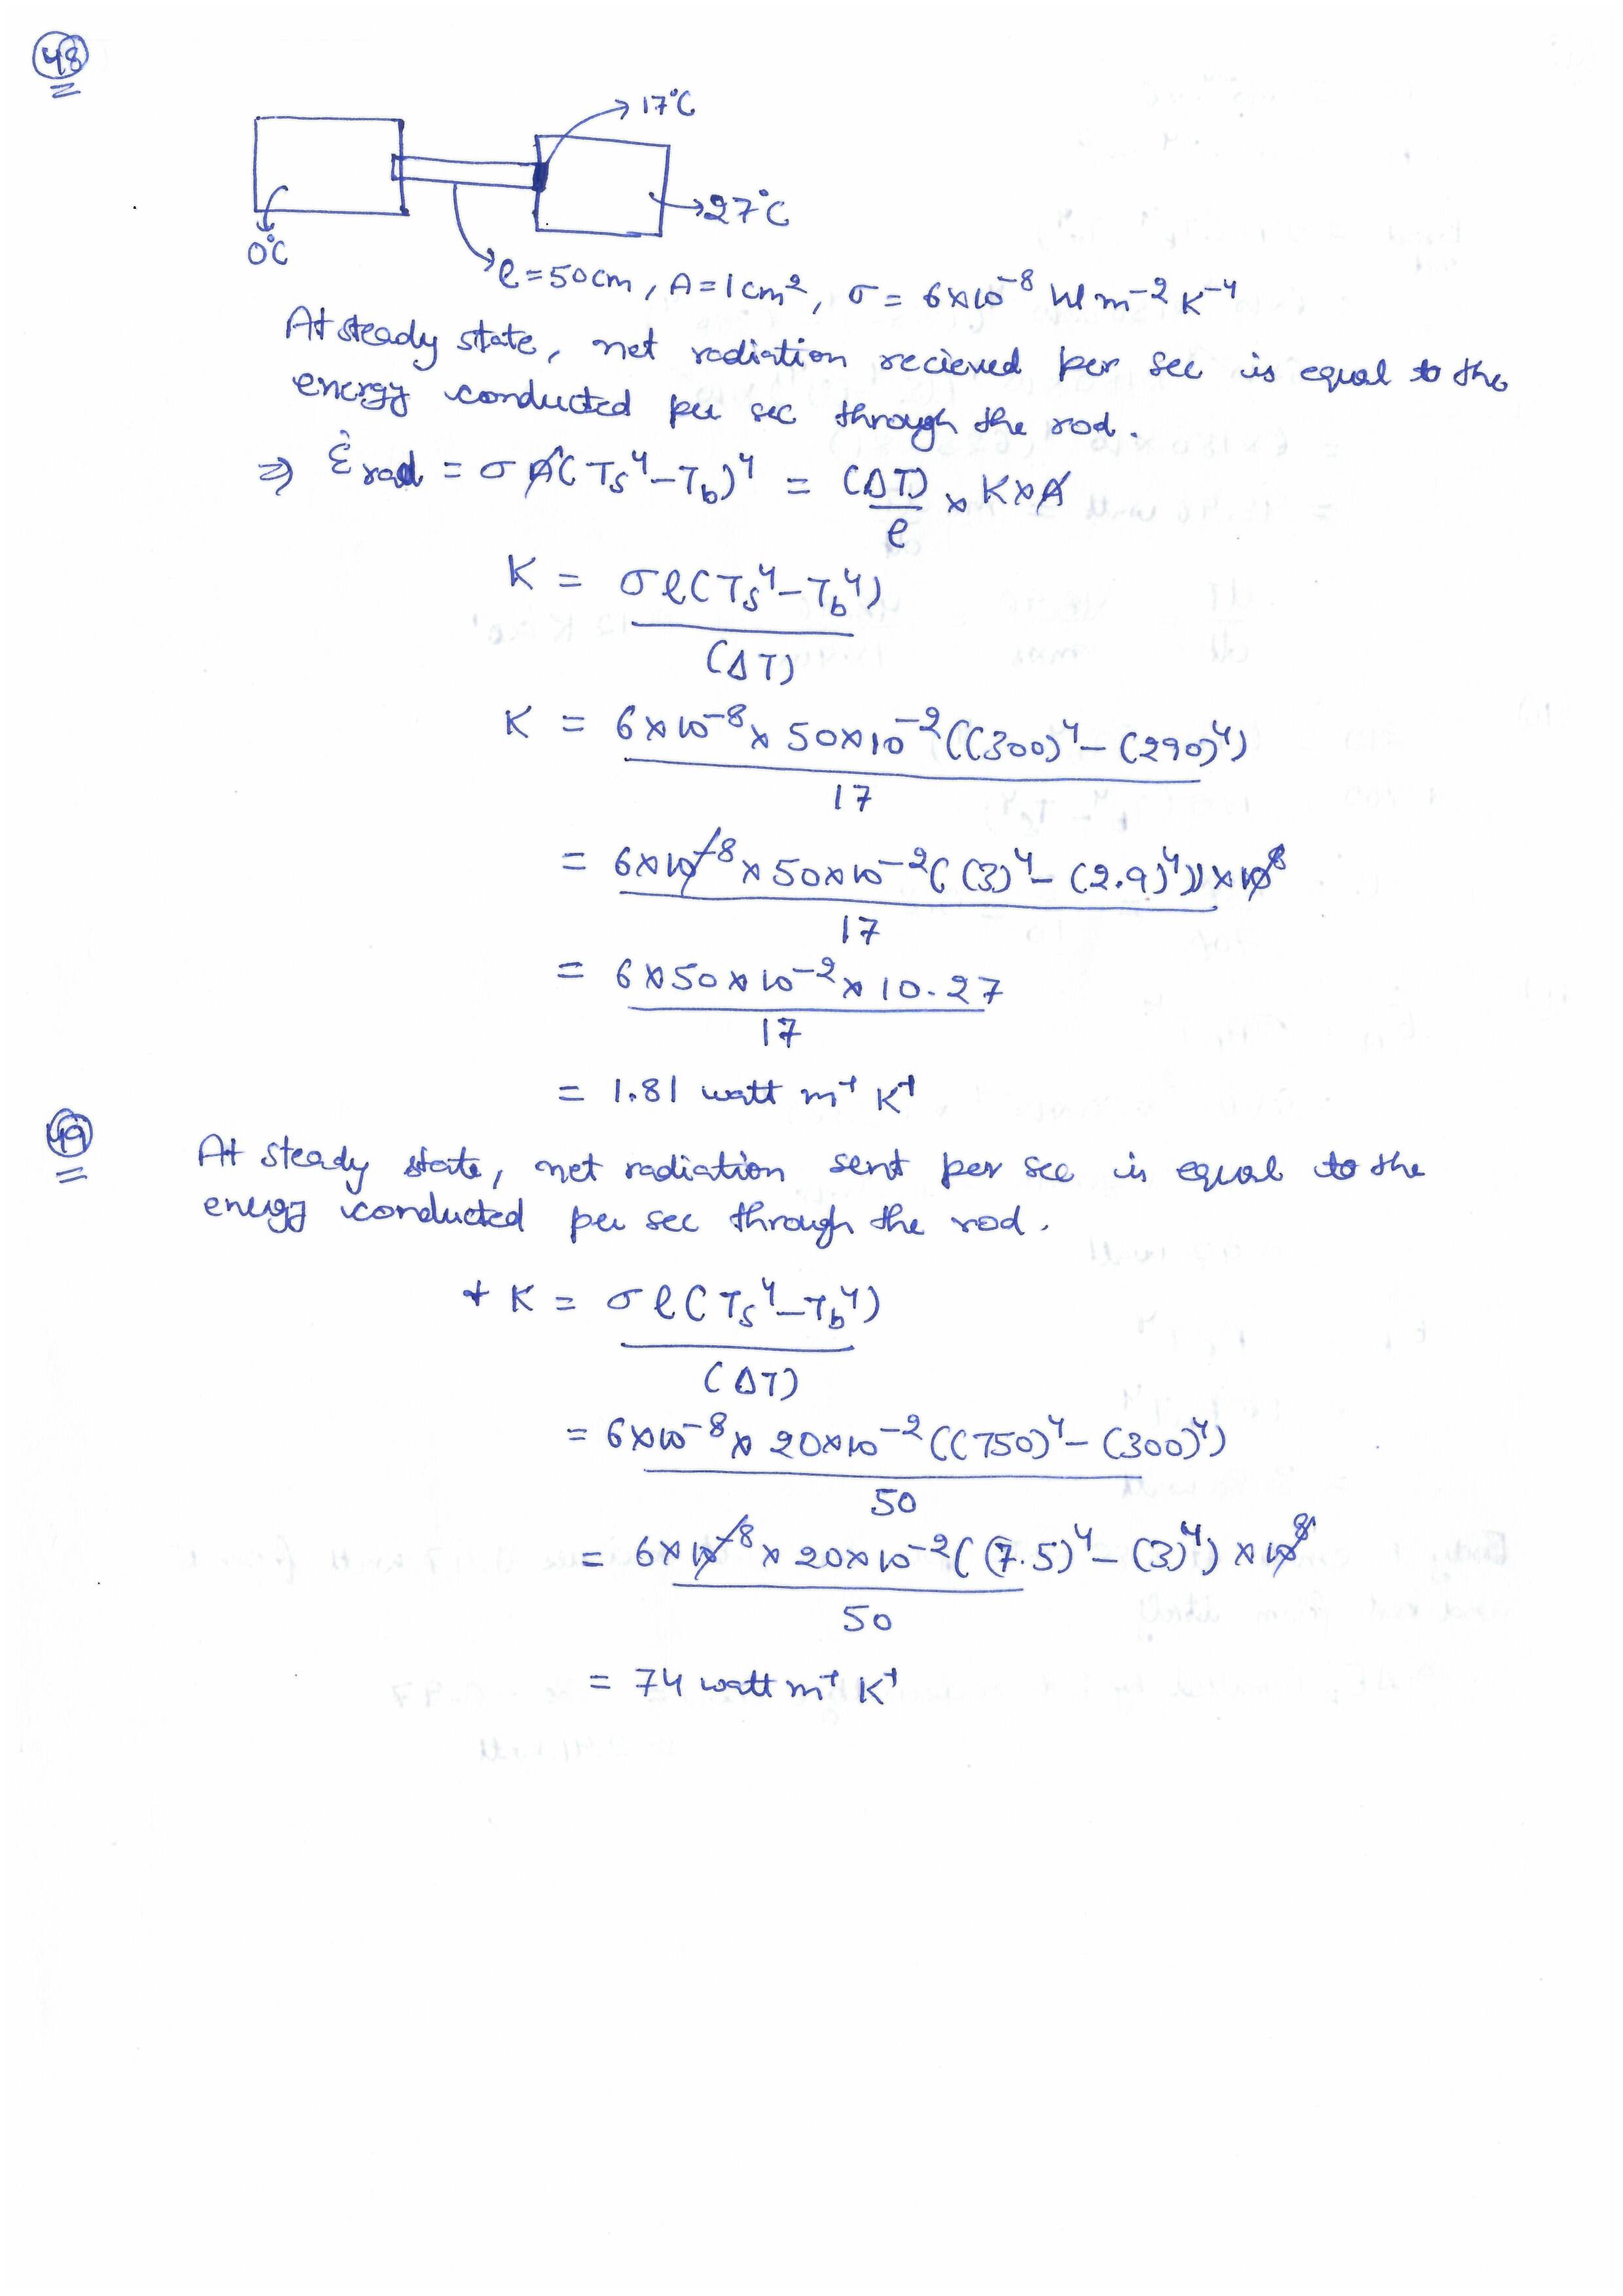 48
17°C
27°C
0°C
l = 50cm, A = 1cm², σ = 6×10⁻⁸ W m⁻² K⁻⁴
At steady state, net radiation recieved per sec is equal to the
energy conducted per sec through the rod.
⇒ Ė rad = σ A( Ts⁴ – Tb)⁴ = (ΔT)/l × K × A
K = σ l ( Ts⁴ – Tb⁴)
(ΔT)
K = 6×10⁻⁸ × 50×10⁻² ((300)⁴ – (290)⁴)
17
= 6×10⁻⁸ × 50×10⁻² ( (3)⁴ – (2.9)⁴)) × 10⁸
17
= 6 × 50 × 10⁻² × 10.27
17
= 1.81 watt m⁻¹ K⁻¹
49
At steady state, net radiation sent per sec is equal to the
energy conducted per sec through the rod.
K = σ l ( Ts⁴ – Tb⁴)
(ΔT)
= 6×10⁻⁸ × 20×10⁻² ((750)⁴ – (300)⁴)
50
= 6×10⁻⁸ × 20×10⁻² ( (7.5)⁴ – (3)⁴) × 10⁸
50
= 74 watt m⁻¹ K⁻¹